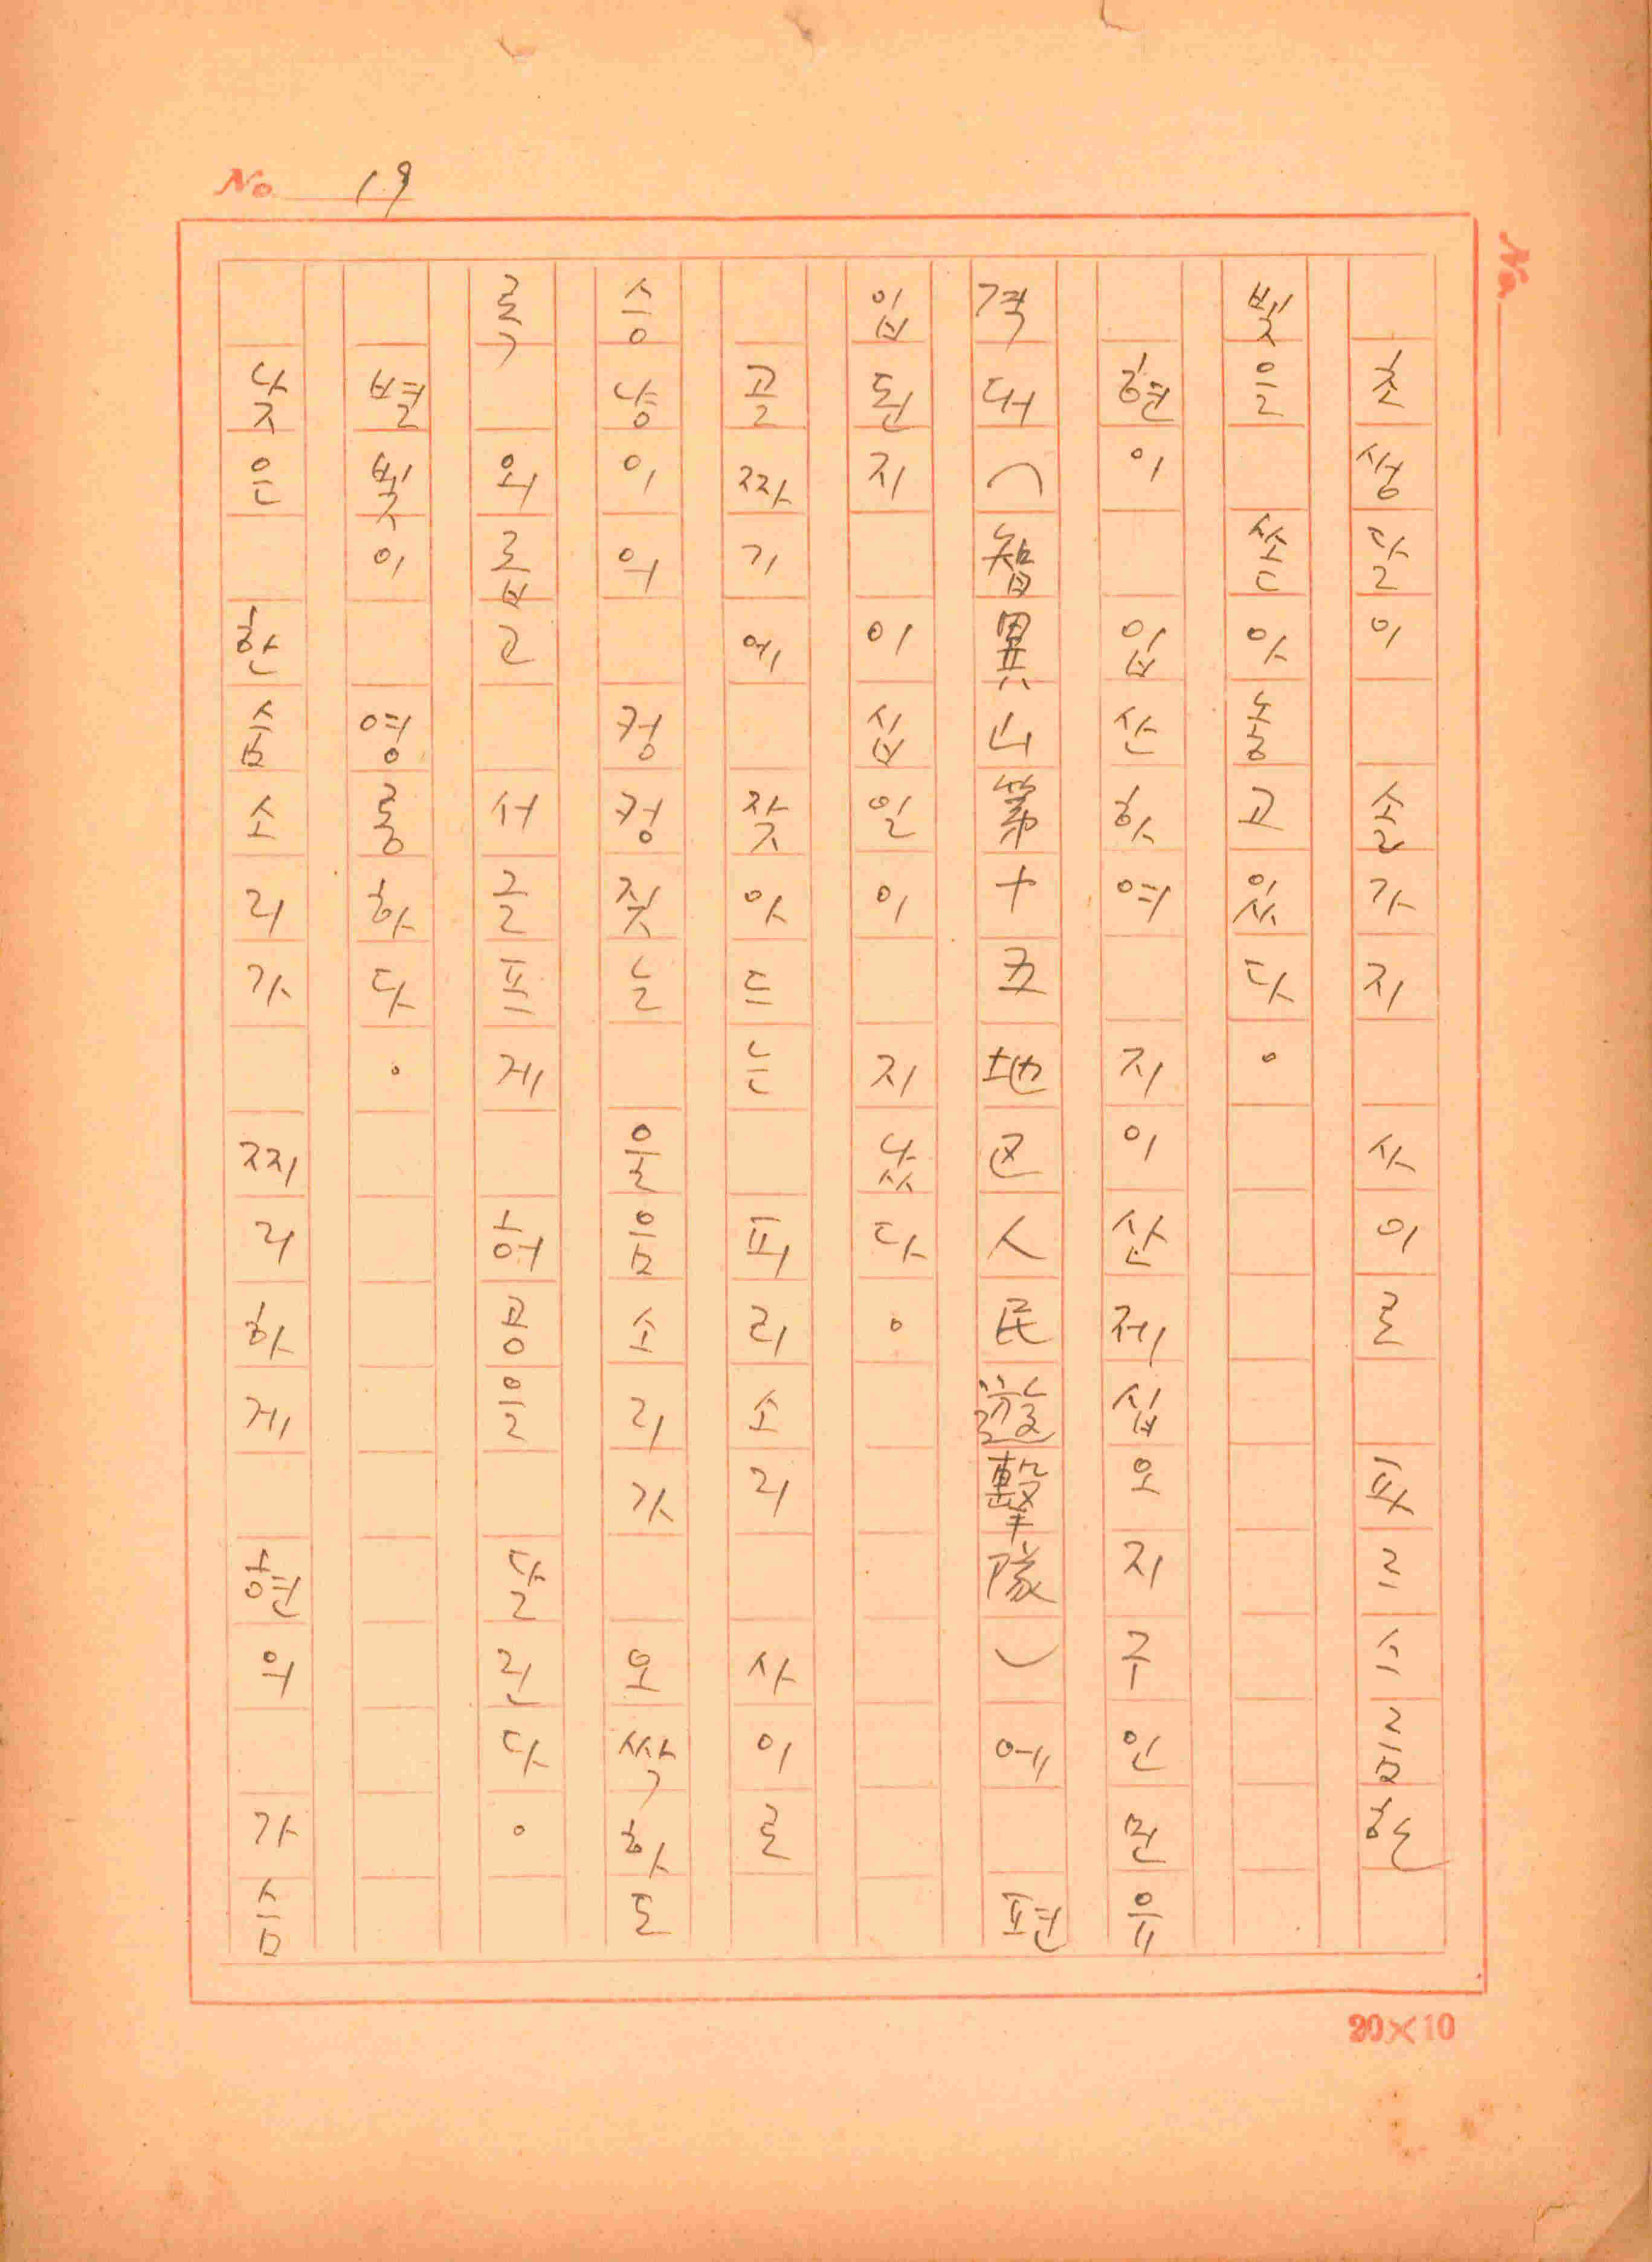 No. 19
No.
초생달이 솔가지 사이로 푸르스름한
빛을 쏟아놓고 있다.
현이 입산하여 지이산제십오지주인민유
격대(智異山第十五地区人民遊擊隊)에 편
입된지 이십일이 지났다.
골짜기에 잦아드는 피리소리 사이로
승냥이의 컹컹짖는 울음소리가 오싹하도
록 외롭고 서글프게 허공을 달린다.
별빛이 영롱하다.
낮은 한숨소리가 찌리하게 현의 가슴
20×10